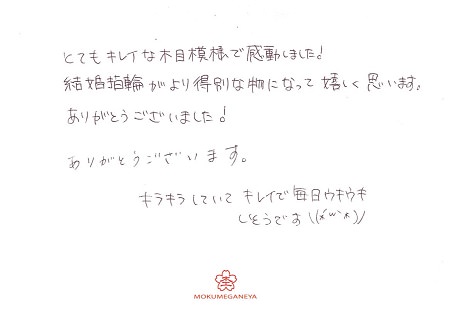 とてもキレイな木目模様で感動しました!
結婚指輪がより得別な物になって嬉しく思います。
ありがとうございました!
ありがとうございます。
キラキラしていて キレイで毎日ウキウキ
しそうです \(*´ω`*)/
MOKUMEGANEYA